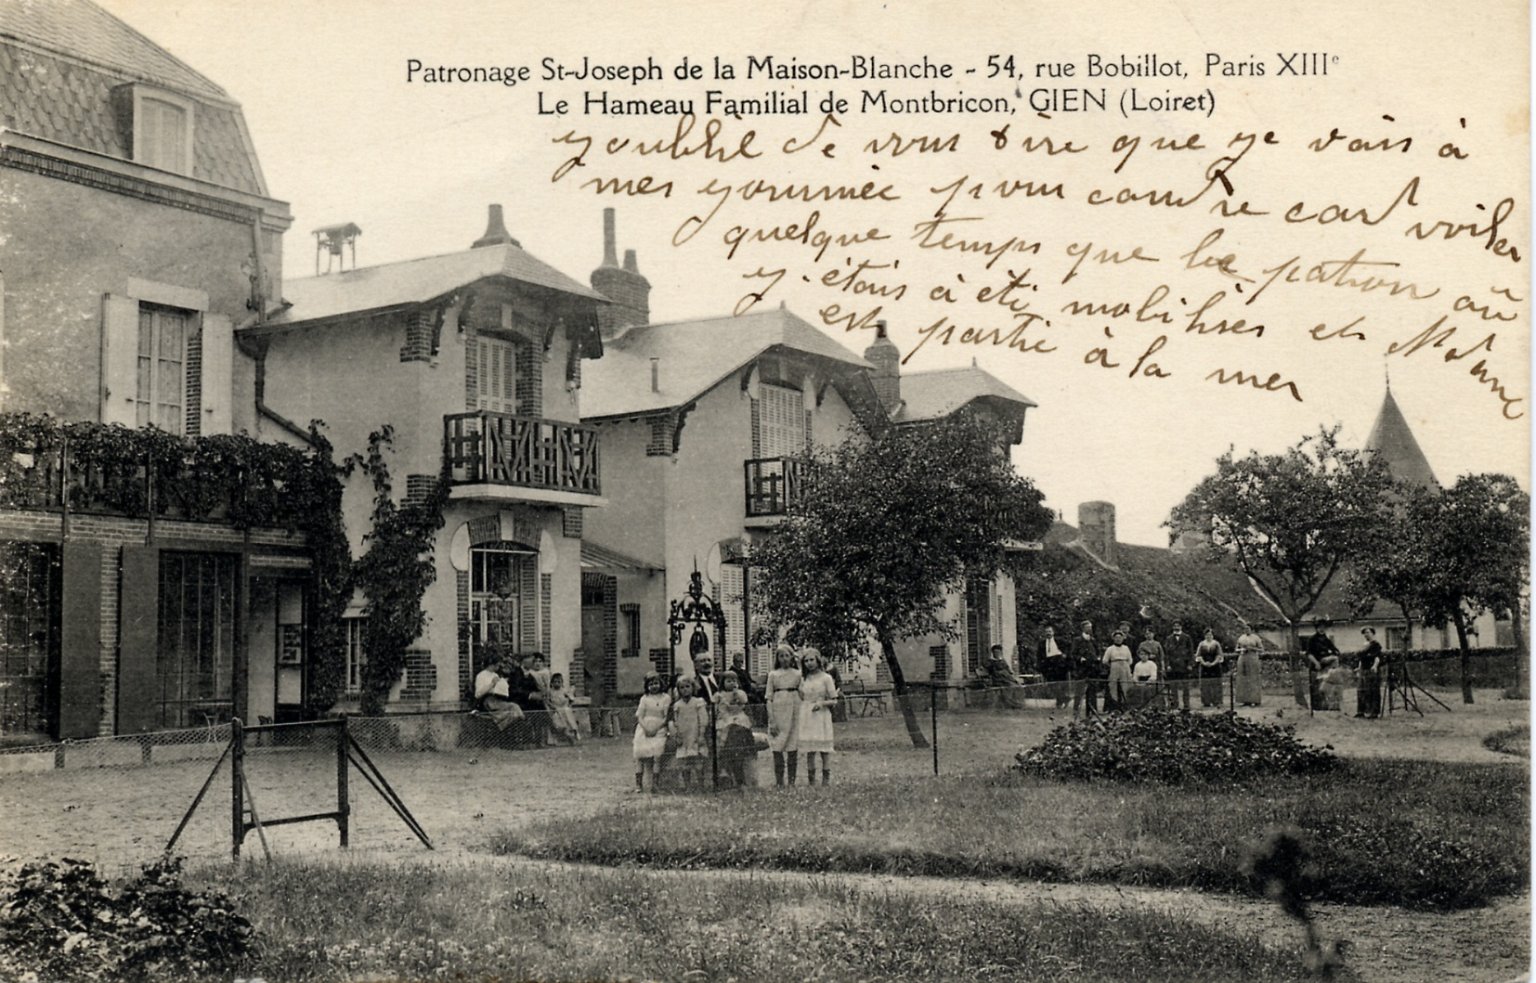 Patronage St-Joseph de la Maison-Blanche - 54, rue Bobillot, Paris XIIIe
Le Hameau Familial de Montbricon, GIEN (Loiret)
youbliè de vous dire que ge vais à
mes gournnée pour coudre card voilea
quelque temps que le patron où
y. étais à été mobilises et Madame
est partie à la mer